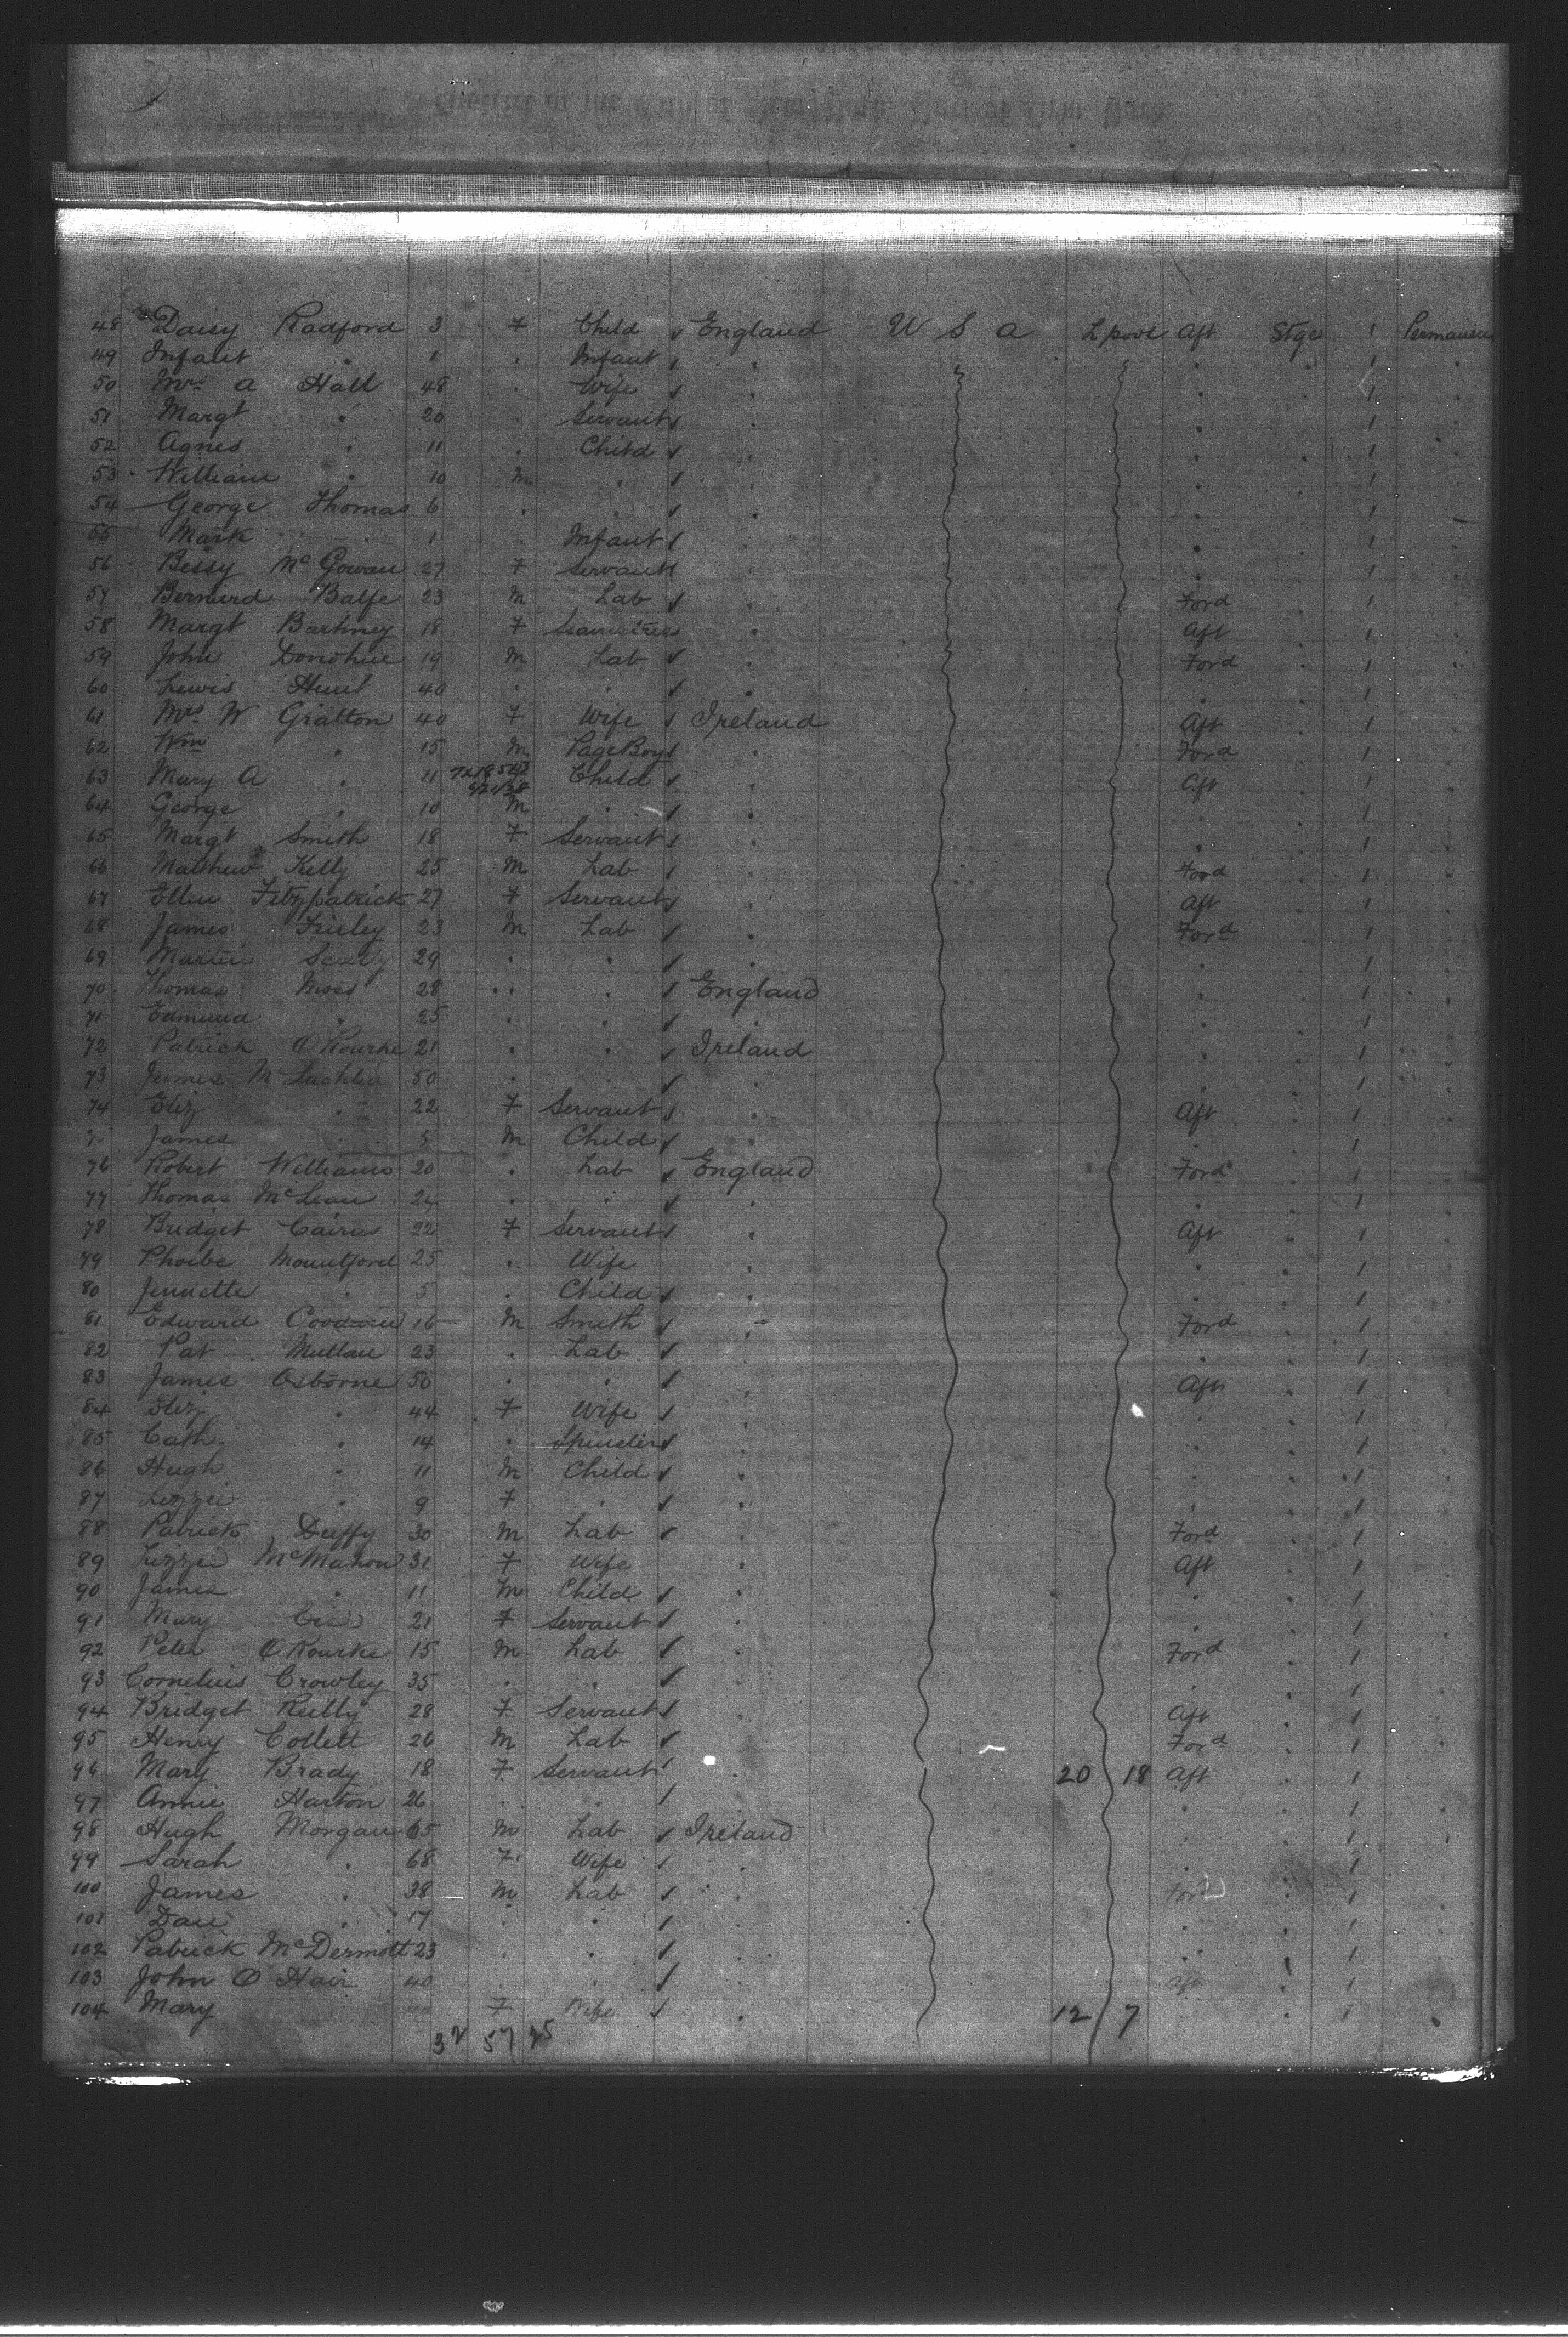 48 Daisy Radford 3 F Child England U S A Lpool Aft Stge 1
49 Infant " 1 " Infant " " 1 "
50 Mrs A Hall 48 " Wife " " 1 "
51 Margt " 20 " Servant " " 1 "
52 Agnes " 11 " Child " " 1 "
53 William " 10 M " " " 1 "
54 George Thomas 6 " " " " 1 "
55 Mark 1 " Infant " " 1 "
56 Bessy McGowan 27 F Servant " " 1 "
57 Bernard Balfe 23 M Lab " Ford " 1 "
58 Margt Bartney 18 F " Aft " 1 "
59 John Donohue 19 M Lab " Ford " 1 "
60 Lewis 40 " " " " 1 "
61 Mrs W Gratton 40 F Wife Ireland Aft " 1 "
62 Wm " 15 M Page Boy " Ford " 1 "
63 Mary A " 11 Child " Aft " 1 "
64 George " 10 M " " " 1 "
65 Margt Smith 18 F Servant " " 1 "
66 Matthew Kelly 25 M Lab " Ford " 1 "
67 Ellen Fitzpatrick 27 F Servant " Aft " 1 "
68 James 23 M Lab " Ford " 1 "
69 Martin 29 " " " " 1 "
70 Thomas Moss 28 " " England " 1 "
71 Edmund " 25 " " " " 1 "
72 Patrick O Rourke 21 " " Ireland " 1 "
73 James McLachlin 50 " " " " 1 "
74 Eliz " 22 F Servant " Aft " 1 "
James " 5 M Child " " 1 "
76 Robert Williams 20 " Lab England Ford " 1 "
77 Thomas McLean " " " " 1 "
78 Bridget Cairns 22 F Servant " Aft " 1 "
79 Phoebe Mountford 25 " Wife " " 1 "
80 Jennette " 5 " Child " " 1 "
81 Edward 16 M Smith " Ford " 1 "
82 Pat Mullan 23 " Lab " " 1 "
83 James Osborne 50 " " " Aft " 1 "
84 Eliz " 44 F Wife " " 1 "
85 Cath " 14 " " " 1 "
86 Hugh " 11 M Child " " 1 "
87 Lizzie " 9 F " " " 1 "
88 Patrick Duffy 30 M Lab " Ford " 1 "
89 Lizzie McMahon 31 F Wife " Aft " 1 "
90 James " 11 M Child " " 1 "
91 Mary 21 F Servant " " 1 "
92 Peter O Rourke 15 M Lab " Ford " 1 "
93 Cornelius Crowley 35 " " " " 1 "
94 Bridget Reilly 28 F Servant " Aft " 1 "
95 Henry Collett 26 M Lab " Ford " 1 "
96 Mary Brady 18 F Servant " 20 18 Aft " 1 "
97 Annie Harton 26 " " " " 1 "
98 Hugh Morgan 65 M Lab Ireland " 1 "
99 Sarah " 68 F Wife " " 1 "
100 James " 38 M Lab " Ford " 1 "
101 Dan " 17 " " " " 1 "
102 Patrick McDermott 23 " " " " 1 "
103 John O Hair 40 " " " Aft " 1 "
104 Mary F Wife " 12 7 " 1 "